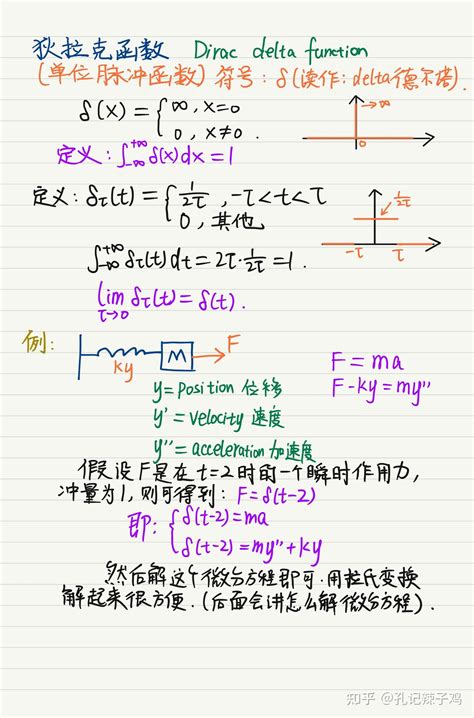 狄拉克函数 Dirac delta function
(单位脉冲函数) 符号: δ(读作: delta德尔塔).
δ(x) = {∞, x=0
0, x≠0.
→∞
0
定义: ∫_{-∞}^{+∞} δ(x)dx = 1
定义: δτ(t) = {1/2τ, -τ<t<τ
0, 其他
1/2τ
-τ τ
∫_{-∞}^{+∞} δτ(t)dt = 2τ·1/2τ = 1.
lim_{τ→0} δτ(t) = δ(t).
例:
ky M F
F = ma
F-ky = my''
y = Position 位移
y' = Velocity 速度
y'' = acceleration 加速度
假设F是在t=2时的一个瞬时作用力,
冲量为1, 则可得到: F = δ(t-2)
即: {δ(t-2) = ma
δ(t-2) = my''+ky
然后解这个微分方程即可. 用拉氏变换
解起来很方便. (后面会讲怎么解微分方程).
知乎 @孔记辣子鸡